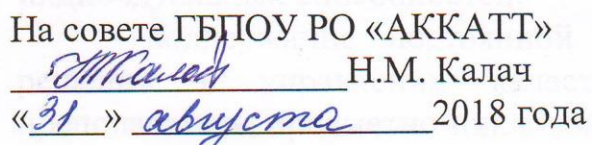 На совете ГБПОУ РО «АККАТТ»
Н.М. Калач
«31» августа 2018 года